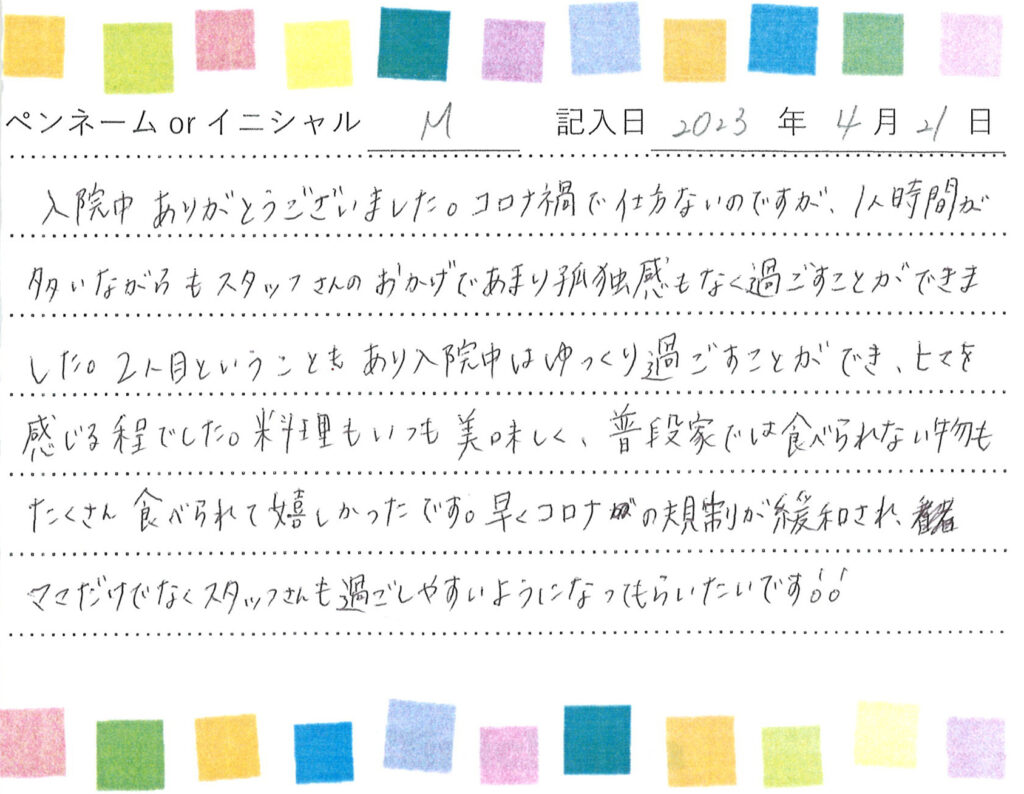 ペンネーム or イニシャル M 記入日 2023 年 4 月 21 日
入院中 ありがとうございました。コロナ禍で仕方ないのですが、1人時間が
多いながらもスタッフさんのおかげであまり孤独感もなく過ごすことができま
した。2人目ということもあり入院中はゆっくり過ごすことができ、ヒマを
感じる程でした。料理もいつも美味しく、普段家では食べられない物も
たくさん食べられて嬉しかったです。早くコロナの規制が緩和され、
ママだけでなくスタッフさんも過ごしやすいようになってもらいたいです!!